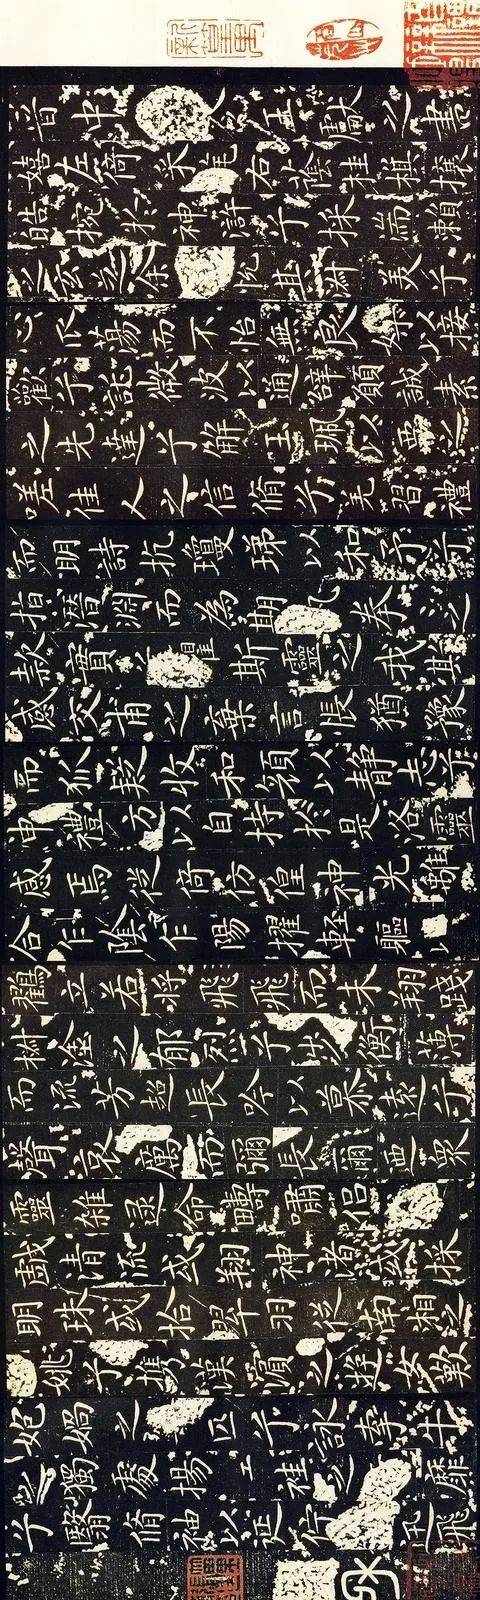 晉中令王獻之書
嬉左倚采旄右蔭桂旗攘
皓捥於神滸兮採湍瀨
之玄芝余悅其淑美兮
心振蕩而不怡無良媒以接
歡兮託微波以通辭願誠素
之先達兮解玉珮以要之
嗟佳人之信脩兮羌習禮
而明詩抗瓊珶以和予兮
指潛淵而為期執拳之
款實兮懼斯靈之我欺
感交甫之棄言悵猶豫
而狐疑收和顏以靜志兮
申禮防以自持於是洛靈
感焉徙倚仿偟神光離
合乍陰乍陽擢輕軀以
鶴立若將飛而未翔踐
椒塗之郁烈兮步衡薄
而流芳超長吟以慕遠兮
聲哀厲而彌長爾迺眾
靈雜遝命疇嘯侶或
戲清流或翔神渚或採
明珠或拾翠羽從南湘之二
姚兮攜漢濱之游女歎
媧之無匹兮詠牽牛
之獨處揚輕袿之猗靡
兮翳脩袖以延佇迅飛